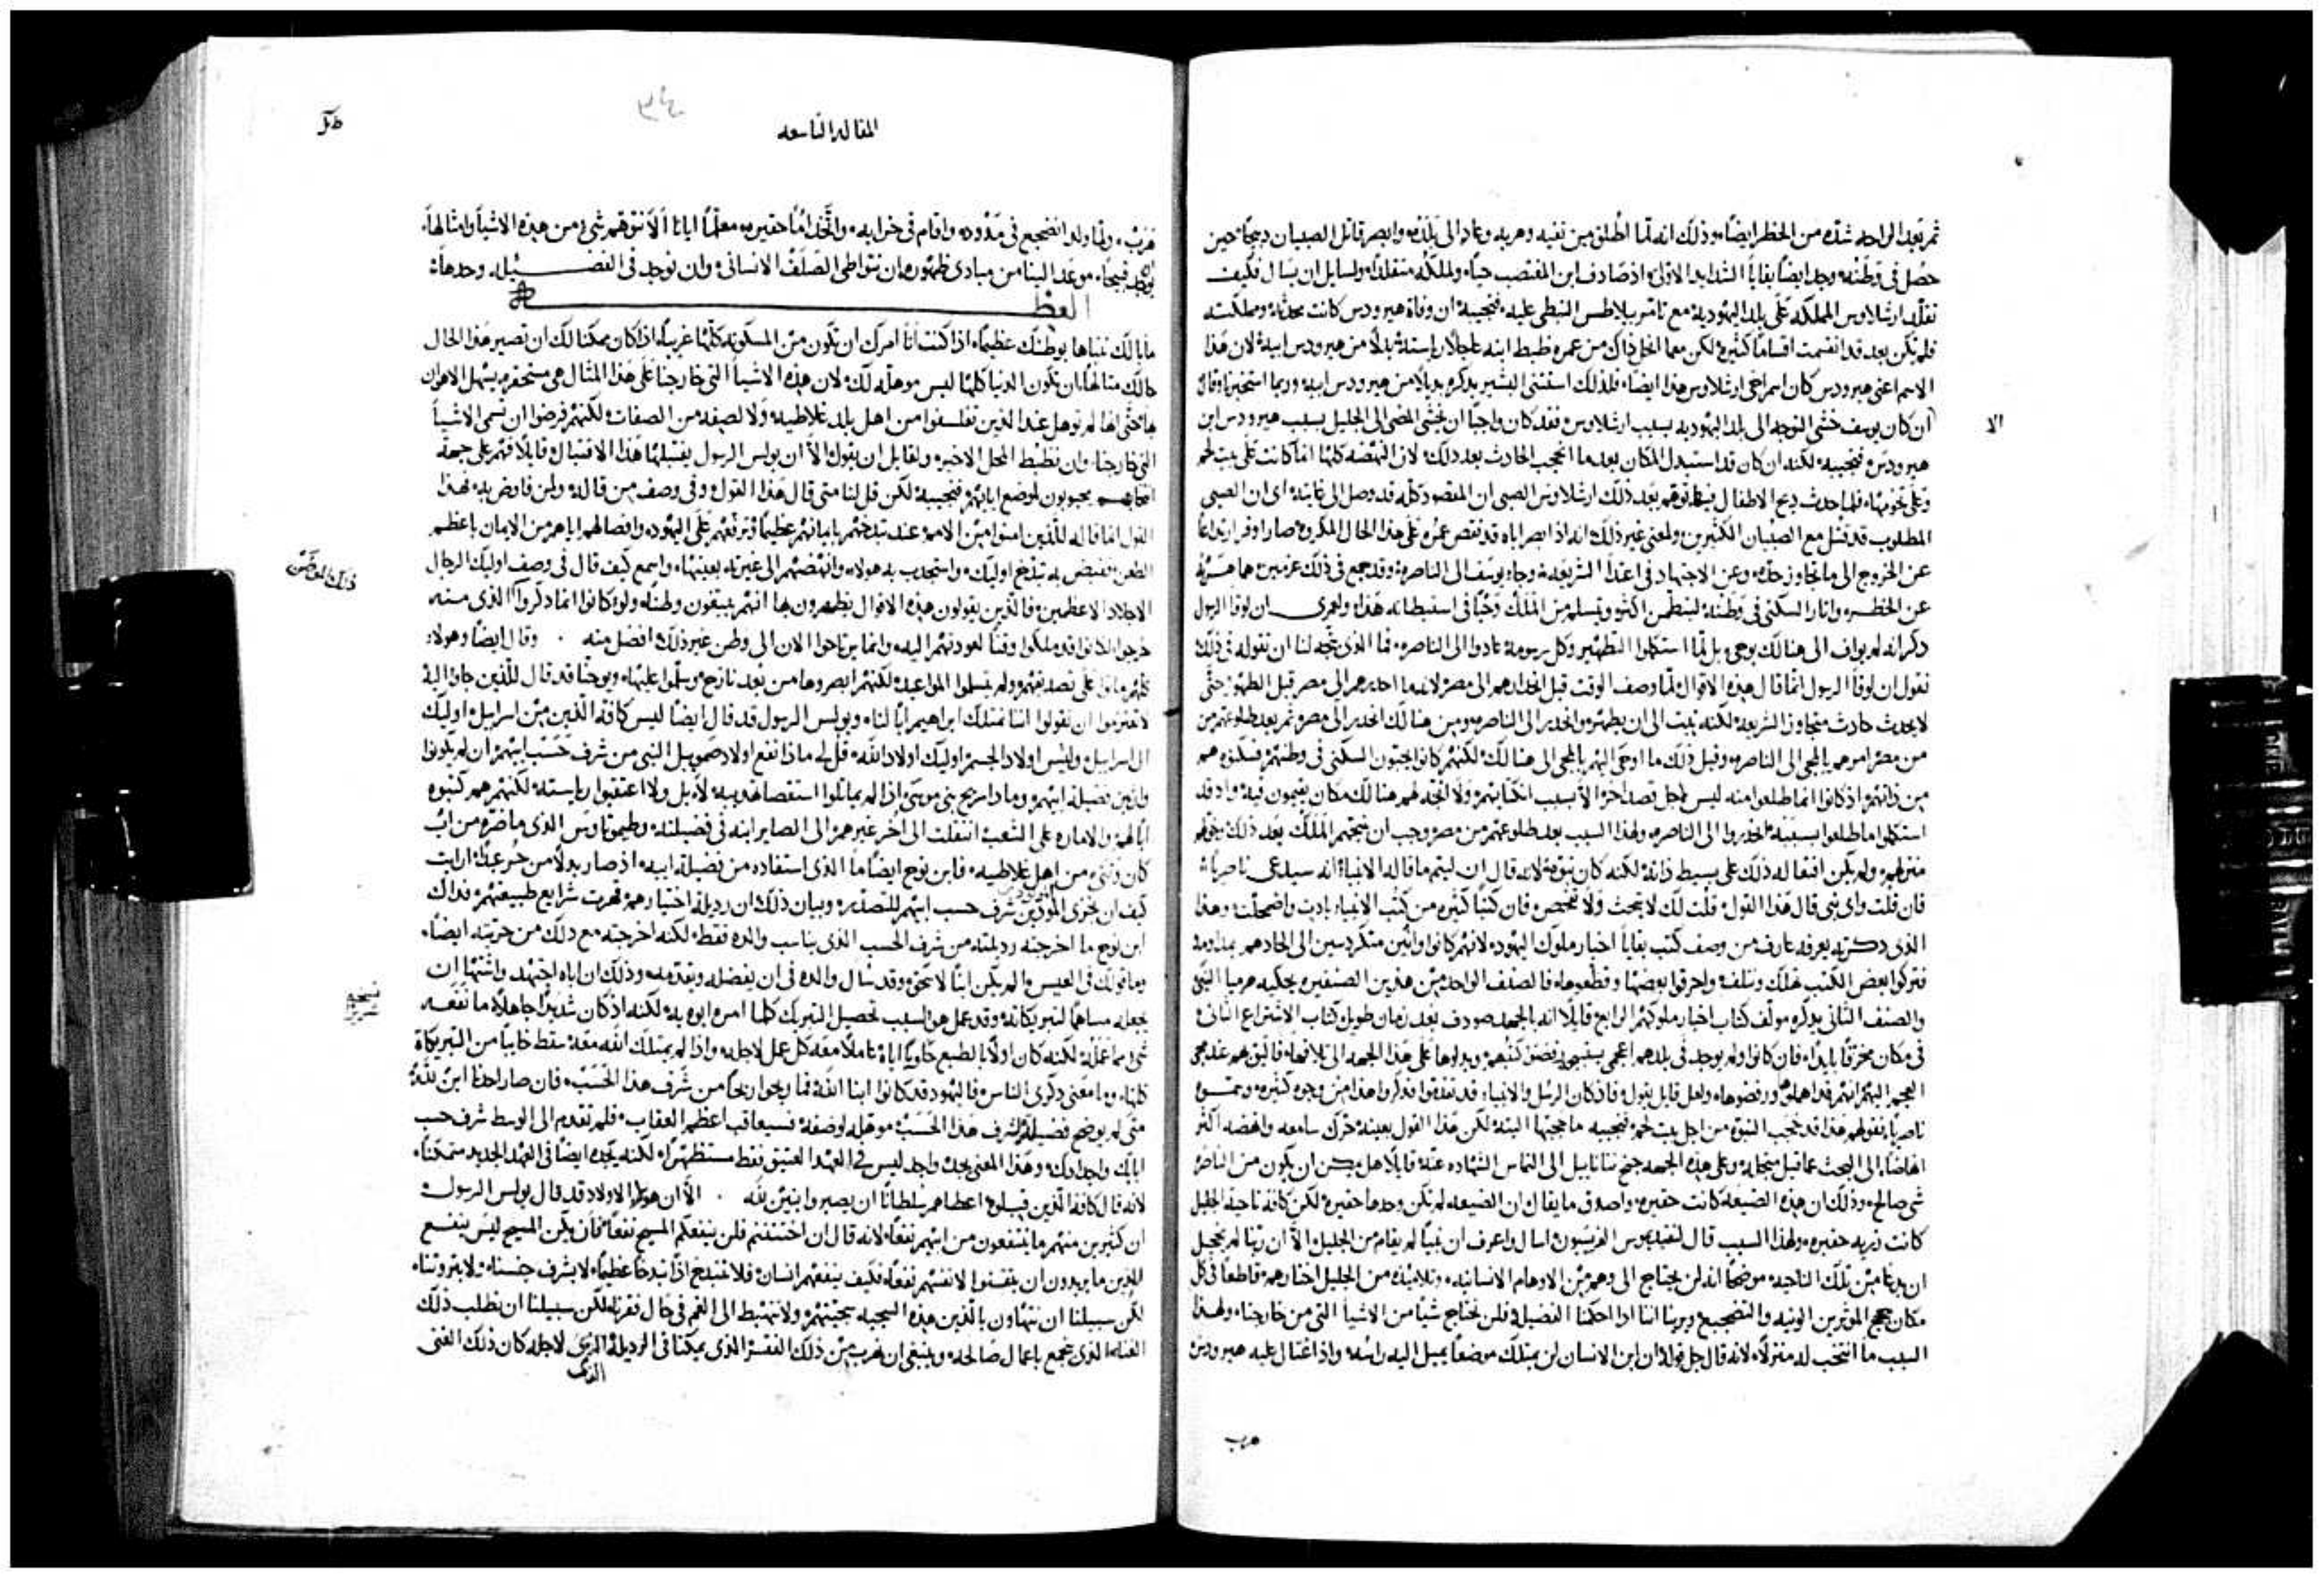 ثم تعبد الراحه شده من الخطر ايضاً وذلك انه لما اطلق من نفيه وهربه وعاد الى بلده وابصر قاتل الصبيان ذبيحاً حين
حصل في وطنه وجد ايضاً بقايا الشدايد الاولى اذ صادف ابن المغتصب حياً والملكه متقلداً ولسايل ان يسال فكيف
تقلد ارشلاوس المملكه على بلد اليهوديه مع تامر بيلاطس النبطي عليه فنجيبه ان وفاة هيرودس كانت محدثه ومملكته
فلم تكن بعد قد انقسمت اقساماً كثيره لكن معما انحل ذاك من عمره ضبط ابنه عاجلاً رياسته بدلاً من هيرودس ابيه لان هذا
الاسم اعني هيرودس كان اسم اخي ارشلاوس هذا ايضاً فلذلك استثنى البشير بذكره بدلاً من هيرودس ابيه وربما استخبرنا وقال
ان كان يوسف خشي التوجه الى بلد اليهوديه بسبب ارشلاوس فقد كان واجباً ان يخشى المضي الى الجليل بسبب هيرودس ابن
هيرودس فنجيبه لكنه ان كان قد استبدل المكان بعدما انحجب الحادث بعد ذلك لان النهضه كلها انما كانت على بيت لحم
وعلى تخومها فلما حدث ذبح الاطفال توهم بعد ذلك ارشلاوس الصبي ان المقصود كله قد وصل الى غايته اي ان الصبي
المطلوب قد قتل مع الصبيان الكثيرين ولمعنى غير ذلك انه اذ ابصر اباه قد نقض عمره على هذا الحال المكروه صار اوفر ارتداعاً
عن الخروج الى ما تجاوز حده وعن الاجتهاد في اعتداً الشريعه وجاء يوسف الى الناصره وقد جمع في ذلك غرضين هما هربه
عن الخطر واثار السكنى في وطنه ليطمن اكثر ويتسلم من الملك وحياً في استيطانه هذا ولعمري ان لوقا الرسول
ذكر انه لم يواف الى هنالك بوحي بل لما استكملوا التطهير وكل رسومه عادوا الى الناصره فما الذي يتجه لنا ان نقوله في ذلك
نقول ان لوقا الرسول انما قال هذه الاقوال لما وصف الوقت قبل انحدارهم الى مصر لانه ما احدرهم الى مصر قبل الطهور حتى
لا يحدث حادث متجاوز الشريعه لكنه تلبث الى ان يطهر وانحدر الى الناصره ومن هنالك انحدر الى مصر ثم بعد طلوعهم من
من مصر امرهم بالمجي الى الناصره وقبل ذلك ما اوحي اليهم بالمجي الى هنالك لكنهم كانوا يحبون السكنى في وطنهم فسكنوه هم
من ذاتهم اذ كانوا انما طلعوا منه ليس لاجل قصد اخر الا بسبب اكتتابهم ولا اتجه لهم هنالك مكان يقيمون فيه واذ قد
استكملوا ما طلعوا بسببه انحدروا الى الناصره ولهذا السبب بعد طلوعهم من مصر وجب ان يمنحهم الملك بعد ذلك
منزلهم ولم يكن افتعاله ذلك على بسيط ذاته لكنه كان بنبوه لانه قال ان ليتم ما قاله الانبيا انه سيدعى ناصرياً
فان قلت واي نبي قال هذا القول قلت لك لا تبحث ولا تفحص فان كتباً كثيره من كتب الانبيا بادت واضمحلت وهذا
الذي ذكرته يعرفه عارف من وصف كتب بقايا اخبار ملوك اليهود لانهم كانوا وانين متكردسين الى الحادهم بمداومه
فتركوا بعض الكتب تهلك وتتلف واحرقوا بعضها وقطعوها فالصنف الواحد من هذين الصنفين يحكيه هرميا النبي
والصنف الثاني يذكره مولف كتاب اخبار ملوكهم الرابع قايلاً انه بالجهد صودف بعد زمان طويل كتاب الاشتراع الثاني
في مكان محفر بايداً فان كانوا ولم يوجد في بلدهم اعجمي
العجم اليهم انهم قد اهملوا ورفضوها ولعل قايل يقول فاذ كان الرسل والانبياء قد تقدموا فذكروا هذا من وجوه كثيره وسموه
ناصرياً فنقول لهم هذا قد حجب النبوه من اجل بيت لحم فنجيبه ما حجبها البته لكن هذا القول بعينه حرك سامعه وانهضه اكثر
انهاضاً الى البحث عما قيل من اجله وعلى هذه الجهه جنح نتانايل الى التماس الشهاده عنه قايلاً هل يمكن ان يكون من الناصره
شي صالح وذلك ان هذه الضيعه كانت حقيره واصدق ما يقال ان الضيعه لم تكن وحدها حقيره لكن كافة ناحية الجليل
كانت زريه حقيره ولهذا السبب قال لنقيديموس الفريسيون اسال واعرف ان نبياً لم يقام من الجليل الا ان ربنا لم يخجل
ان يدعا من تلك الناحيه موضحاً انه لن يحتاج الى وهم من الاوهام الانسانيه وتلاميذه من الجليل اختارهم قاطعاً في كل
مكان حجج الموثرين الونيه والتضجيع ويرينا اننا اذا احكمنا الفضيله فلن نحتاج شياً من الاشيا التي من خارجنا ولهذا
السبب ما انتخب له منزلاً لانه قال جل قوله وان ابن الانسان لن يمتلك موضعاً يميل اليه راسه واذ اغتال عليه هيرودس
الا
هرب
المقاله التاسعه
٣٤
هرب ولما ولد انضجع في مذود واقام في خرابه واتخذ اماً حقيره معلماً ايانا الا نتوهم شي من هذه الاشيا وامثالها
قبيحاً موعداً الينا من مبادي ظهوره ان نتواطى الصلف الانساني وان نوجد في الفضيله وحدها
العظه
ما بالك تتباها بوطنك عظيماً اذا كنت انا امرك ان تكون من المسكونه كلها غريباً اذ كان ممكناً لك ان تصير هذا الحال
حالك متالهاً بان تكون الدنيا كلها ليس موهله لك لان هذه الاشيا التي خارجنا على هذا المثال هي مستحقره يسهل الاهوان
بها حتى انها لم توهل عند الذين تفلسفوا من اهل بلد غلاطيه ولا لصفه من الصفات لكنهم فرضوا ان تسمى الاشيا
التي خارجنا وان تظبط المحل الاخير ولقايل ان يقول الا ان بولس الرسول يقتبلها هذا الاقتبال قايلاً فهم على جهة
انتخابهم محبوبون لموضع ابايهم فنجيبه لكن قل لنا متى قال هذا القول وفي وصف من قاله ولمن فاوض به فهذا
القول انما قاله للذين امنوا من الامم عند تبذخهم بايمانهم عظيماً وترفعهم على اليهود وافصالهم اياهم من الايمان باعظم
الطعن فقبض به تبذخ اوليك واستجذب به هولاء وانهضهم الى غيرته بعينها واسمع كيف قال في وصف اوليك الرجال
الاجلاد الاعظمين فالذين يقولون هذه الاقوال يظهرون بها انهم يبتغون وطناً ولو كانوا انما ذكروا الذي منه
خرجوا لكانوا قد ملكوا وقتاً لعودتهم اليه وانما يرتاحوا الان الى وطن غير ذلك افضل منه وقال ايضاً وهولاء
كلهم ماتوا على تصديقهم ولم يتسلموا المواعيد لكنهم ابصروها من بعد نازح وسلموا عليها ويوحنا قد قال للذين جاوا اليه
لا تعتزموا ان تقولوا اننا نمتلك ابراهيم اباً لنا وبولس الرسول قد قال ايضاً ليس كافة الذين من اسراييل اوليك
ال اسراييل وليس اولاد الجسم اوليك اولاد الله قل لي ماذا نفع اولاد صمويل النبي من شرف حسب ابيهم ان لم يكونوا
وارثين فضيلة ابيهم وماذا ربح بني موسى اذا لم يماثلوا استقصا هديه لا بل ولا اعتقبوا رياسته لكنهم هم كتبوه
اباً لهم والاماره على الشعب انتقلت الى اخر غيرهم الى الصاير ابنه في فضيلته وطيموتاوس الذي ما ضره من اب
كان وثني من اهل غلاطيه فابن نوح ايضاً ما الذي استفاده من فضيلة ابيه اذ صار بدلاً من حر عبداً ارايت
كيف ان يجزى شرف حسب ابيهم للتصدير وبيان ذلك ان رذيلة اختيارهم قهرت شرايع طبيعتهم فذاك
ابن نوح ما اخرجته رذيلته من شرف الحسب الذي يناسب والده فقط لكنه اخرجته مع ذلك من حريته ايضاً
وما قولك في العيس الم يكن ابناً لاسحق وقد سال والده في ان يفضله ويقدمه وذلك ان اباه اجتهد واشتها ان
يجعله مساهماً لتبريكاته وقد عمل هو لسبب تحصيل التبريك كلما امره ابوه به لكنه اذ كان شديراً جاهلاً ما نفعه
شي مما عمله لكنه كان اولاً بالطبع حاوياً اياه عاملاً معه كل عمل لاجله واذا لم يمتلك الله معه سقط خايباً من التبريكاة
كلها وما معنى ذكري الناس فاليهود قد كانوا ابنا الله فما ربحوا ربحاً من شرف هذا الحسب فان صار احدنا ابن لله
متى لم يوضح فضيلة لشرف هذا الحسب موهله لوصفه فسيعاقب اعظم العقاب فلم تقدم الى الوسط شرف حسب
اباك واجدادك وهذا المعنى يجده واجد ليس في العهد العتيق فقط مستظهراً لكنه يجده ايضاً في العهد الجديد متمكناً
لانه قال كافة الذين قبلوه اعطاهم سلطاناً ان يصيروا ابنين لله الا ان هولاء الاولاد قد قال بولس الرسول
ان كثيرين منهم ما ينتفعون من ابيهم نفعاً لانه قال ان اختتنتم فلن ينفعكم المسيح نفعاً فان يكن المسيح ليس ينفع
الذين ما يريدون ان يقتنوا لانفسهم نفعاً فكيف ينفعهم انسان فلا نتبذخ اذاً تبذخاً عظيماً لا بشرف جنسنا ولا بثروتنا
لكن سبيلنا ان نتهاون بالذين هذه السجيه سجيتهم ولا نهتبط الى الغم في حال فقرنا لكن سبيلنا ان نطلب ذلك
الغنا الذي يجمع باعمال صالحه وينبغي ان نهرب من ذلك الفقر الذي يمكنا في الرذيله الذي لاجله كان ذلك الغني
الذي
نسخه